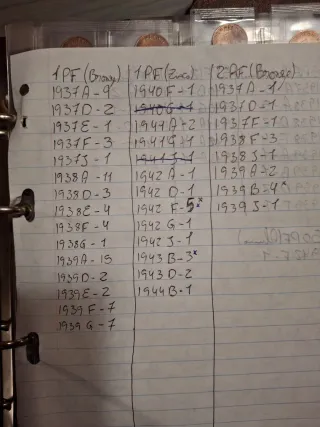 1 PF (Bronz)
1937 A - 9
1937 D - 2
1937 E - 1
1937 F - 3
1937 J - 1
1938 A - 11
1938 D - 3
1938 E - 4
1938 F - 4
1938 G - 1
1939 A - 15
1939 D - 2
1939 E - 2
1939 F - 7
1939 G - 7
1 PF (Zinc)
1940 F - 1
1940 G - 1
1941 A - 2
1941 G - 1
1941 J - 1
1942 A - 1
1942 D - 1
1942 F - 5 x
1942 G - 1
1942 J - 1
1943 B - 3 x
1943 D - 2
1944 B - 1
2 PF (Bronze)
1937 A - 1
1937 D - 1
1937 F - 1
1938 F - 3
1938 J - 1
1939 A - 2
1939 B - 4
1939 J - 1